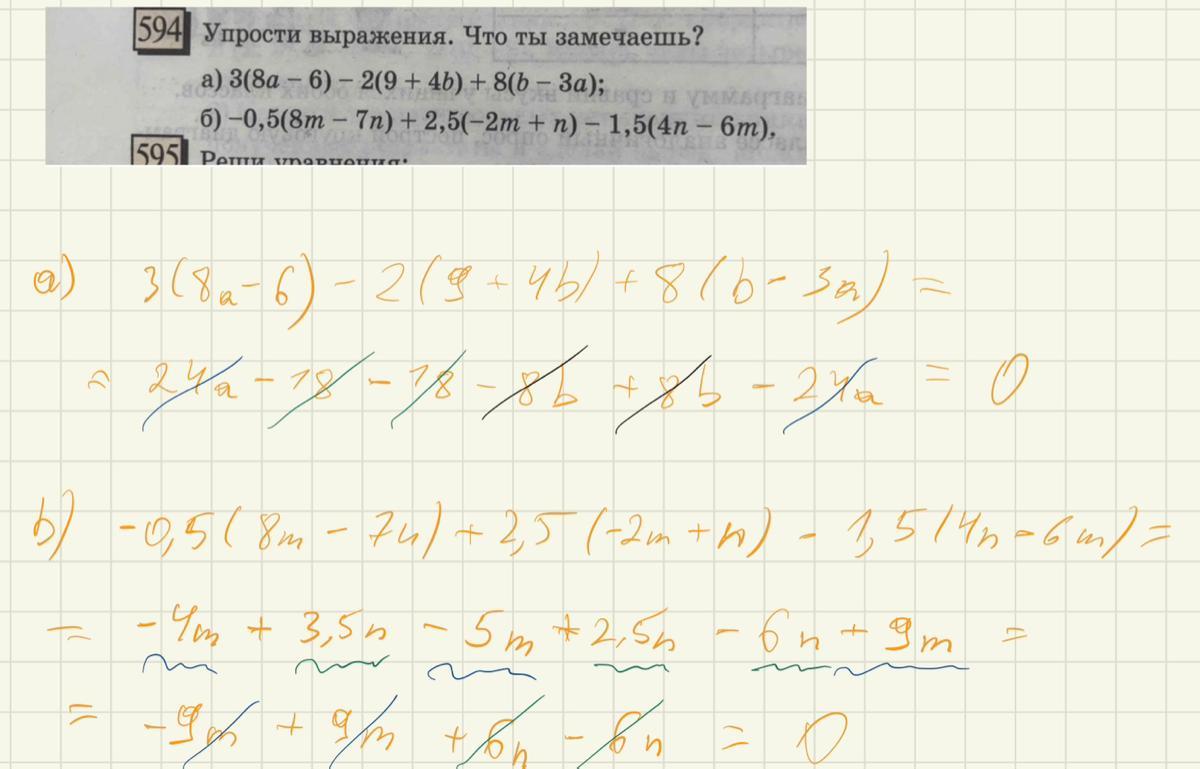 594 Упрости выражения. Что ты замечаешь?
а) 3(8a − 6) − 2(9 + 4b) + 8(b − 3a);
б) −0,5(8m − 7n) + 2,5(−2m + n) − 1,5(4n − 6m).
595 Реши уравнения:
a) 3(8a − 6) − 2(9 + 4b) + 8(b − 3a) =
= 24a − 18 − 18 − 8b + 8b − 24a = 0
b) −0,5(8m − 7n) + 2,5(−2m + n) − 1,5(4n − 6m) =
= −4m + 3,5n − 5m + 2,5n − 6n + 9m =
= −9m + 9m + 6n − 6n = 0